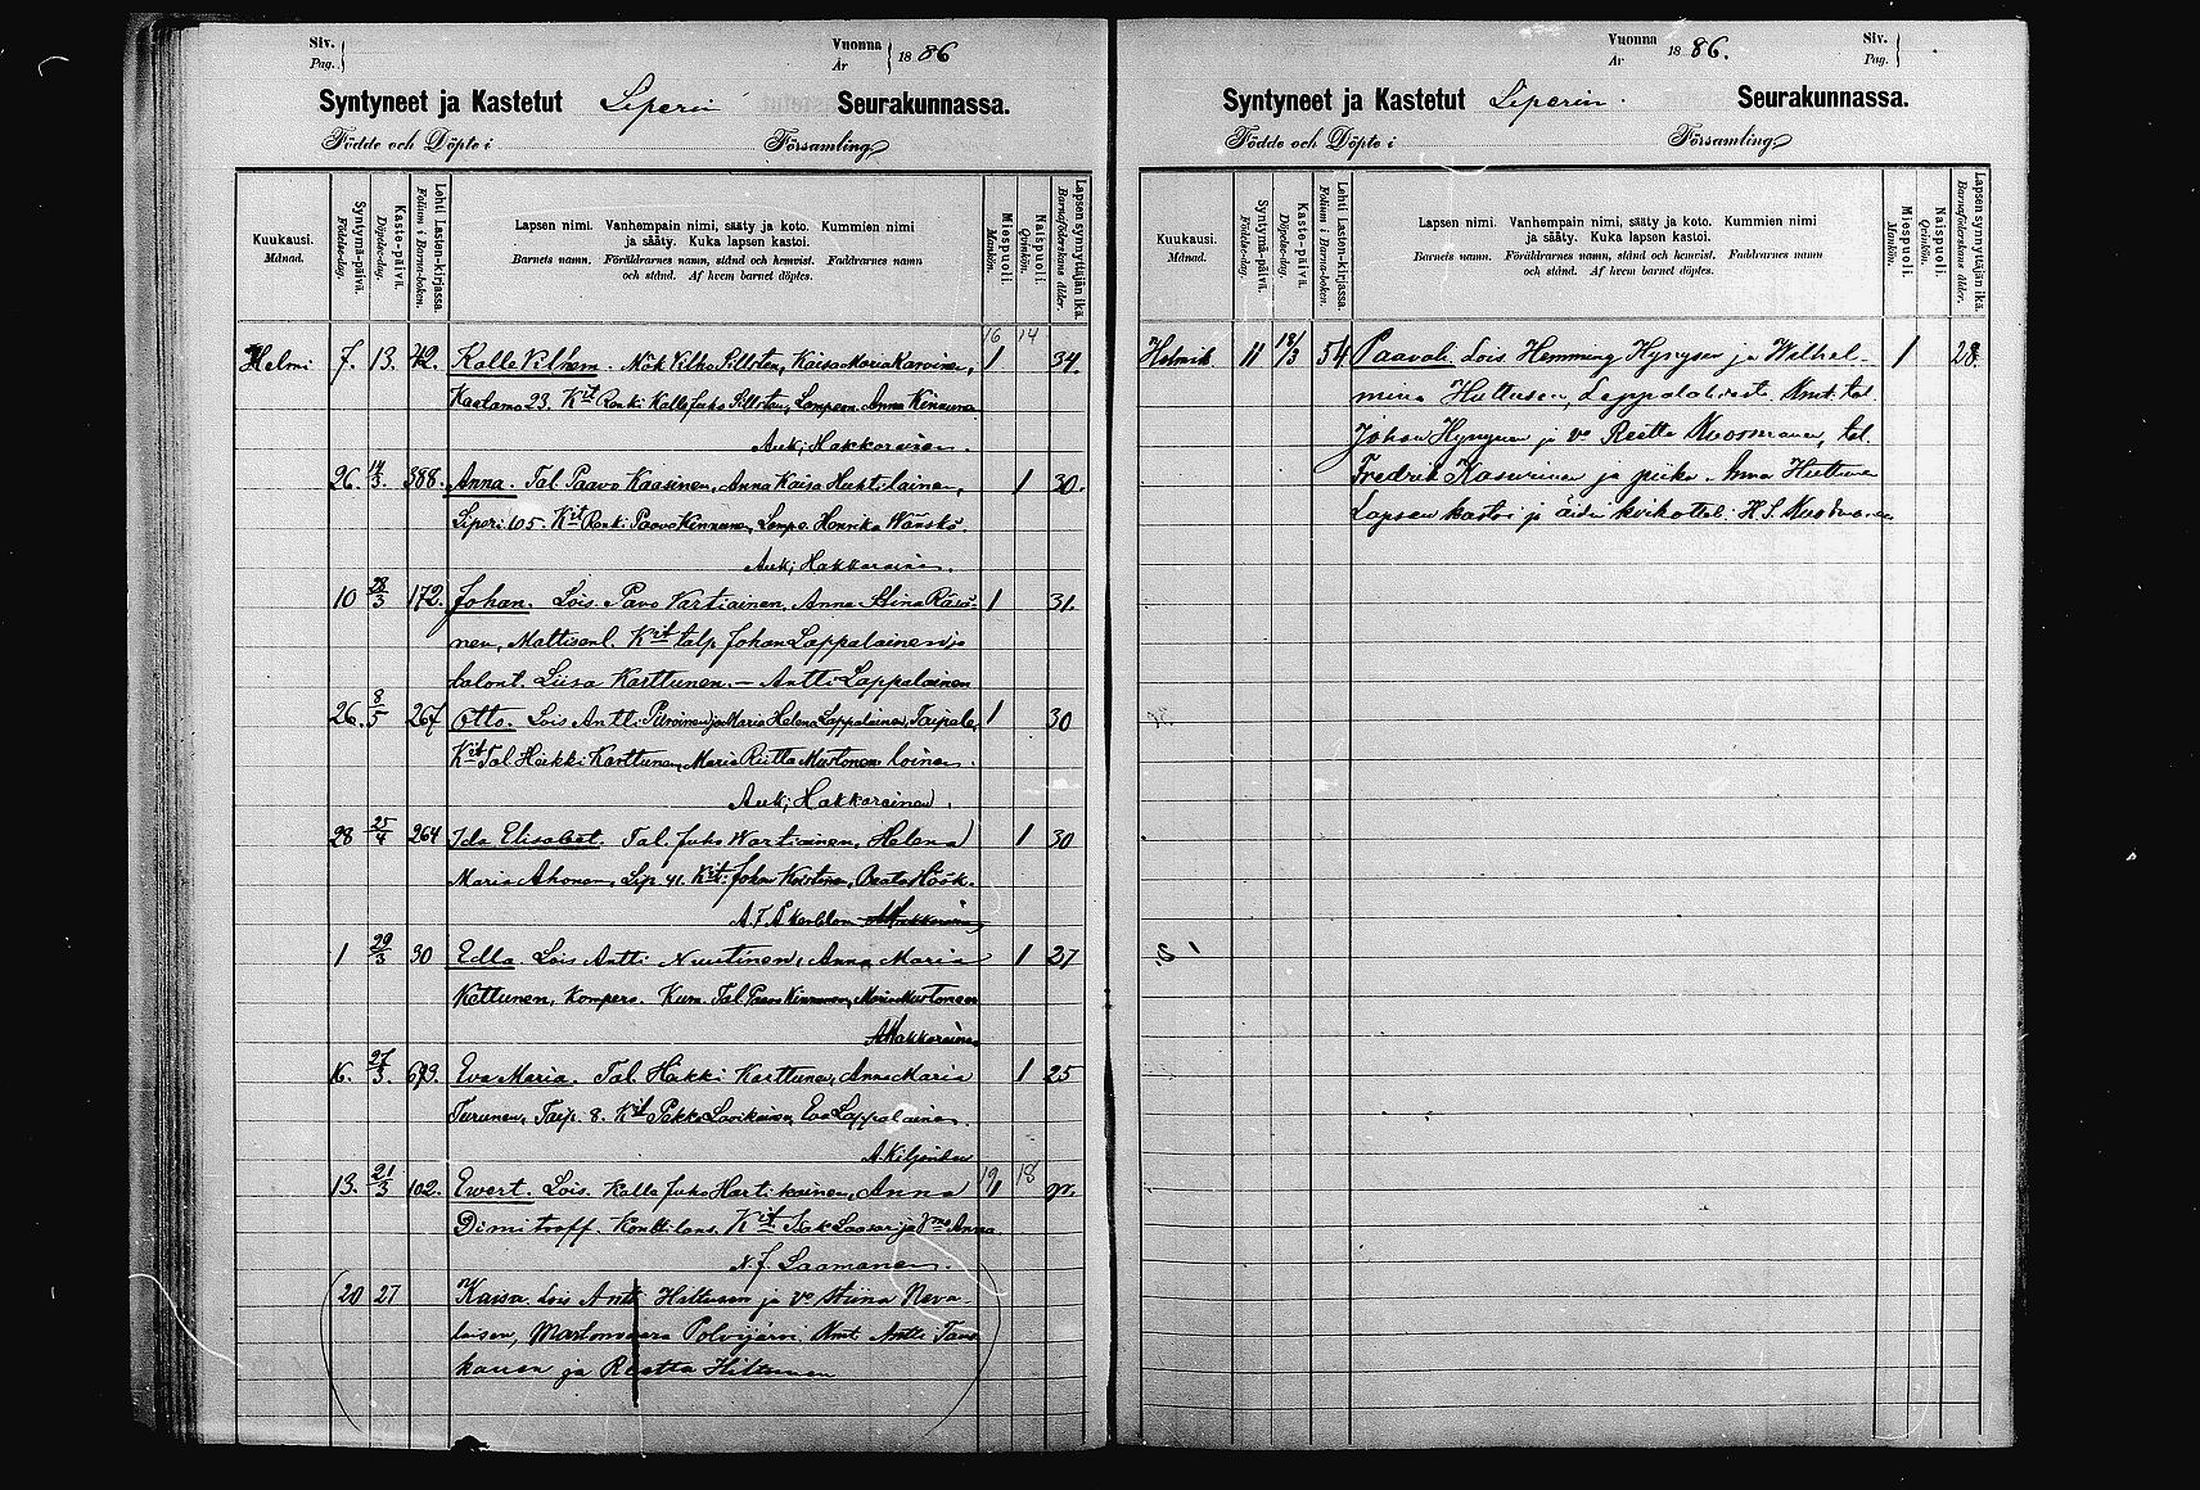 Siv.
Pag.
Vuonna
År
1886
Syntyneet ja Kastetut Liperin Seurakunnassa.
Födde och Döpte i Församling
Kuukausi.
Månad.
Syntymä-päivä.
Födelse-dag.
Kaste-päivä.
Döpelse-dag.
Lehti Lasten-kirjassa.
Folium i Barna-boken.
Lapsen nimi. Vanhempain nimi, sääty ja koto. Kummien nimi
ja sääty. Kuka lapsen kastoi.
Barnets namn. Föräldrarnes namn, stånd och hemvist. Faddrarnes namn
och stånd. Af hvem barnet döptes.
Miespuoli.
Mankön.
Naispuoli.
Qvinkön.
Lapsen synnyttäjän ikä.
Barnaföderskans ålder.
16 14
Helmi 7. 13. 42. Kalle Vilhem. Mök Vilho Sillsten, Kaisa Maria Karvinen, 1 34.
Kaatamo 23. Kit Renki Kalle Juho Sillsten, Anna Kinnunen
Auk; Hakkarainen.
26. 14/3. 388. Anna. Tal. Paavo Kaasinen, Anna Kaisa Huhtilainen, 1 30.
Liperi 105. Kit Renki Paavo Kinnunen, Henrika Wänskö.
Auk; Hakkarainen.
10 28/3 172. Johan. Lois. Pavo Vartiainen, Anna Stina Räsä- 1 31.
nen, Mattisenl. Kit talp. Johan Lappalainen ja
talont. Liisa Karttunen. — Antti Lappalainen
26. 8/5 267 Otto. Lois Antti Piiroinen ja Maria Helena Lappalainen, Taipale 1 30
Kit Tal. Heikki Karttunen, Maria Riitta Mustonen loinen.
Auk; Hakkarainen.
28 25/4 264 Ida Elisabet. Tal. Juho Wartiainen, Helena 1 30
Maria Ahonen, Lip. 41. Kit: Johan Beata Höök.
A. F. Åkerblom
1 29/3 30 Edla. Lois Antti Nuutinen, Anna Maria 1 27
Kettunen, Kompero. Kum. Tal. Paavo Kinnunen, Maria Mustonen
AHakkarainen
16. 27/3. 673. Eva Maria. Tal. Heikki Karttunen, Anna Maria 1 25
Turunen, Taip. 8. Kit Pekka Lavikainen, Eva Lappalainen.
A. Kiljander
19 18
13. 21/3 102. Ewert. Lois. Kalle Juho Hartikainen, Anna 1
Dimitroff. Konttilans. Kit. Isak Laasar ja Vmo Anna.
N. J. Laamanen.
20 27 Kaisa. Lois Antti Hiltusen ja vo Stiina Neva-
laisen, Martonvaara Polvijärvi. Kmt. Antti Tans
kanen ja Reetta Hiltunen
Vuonna
År
1886.
Siv.
Pag.
Syntyneet ja Kastetut Liperin. Seurakunnassa.
Födde och Döpte i Församling
Kuukausi.
Månad.
Syntymä-päivä.
Födelse-dag.
Kaste-päivä.
Döpelse-dag.
Lehti Lasten-kirjassa.
Folium i Barna-boken.
Lapsen nimi. Vanhempain nimi, sääty ja koto. Kummien nimi
ja sääty. Kuka lapsen kastoi.
Barnets namn. Föräldrarnes namn, stånd och hemvist. Faddrarnes namn
och stånd. Af hvem barnet döptes.
Miespuoli.
Mankön.
Naispuoli.
Qvinkön.
Lapsen synnyttäjän ikä.
Barnaföderskans ålder.
Helmik. 11 18/3 54 Paavali. Lois. Hemming Hynysen ja Wilhel- 1 28.
mina Huttusen, Kmt. tal.
Johan Hynynen ja vo Reetta Kuosmanen, tal.
Fredrik Kasurinen ja piika Anna Huttunen
Lapsen kastoi ja äidin kirkotteli H. S. Kuosmanen